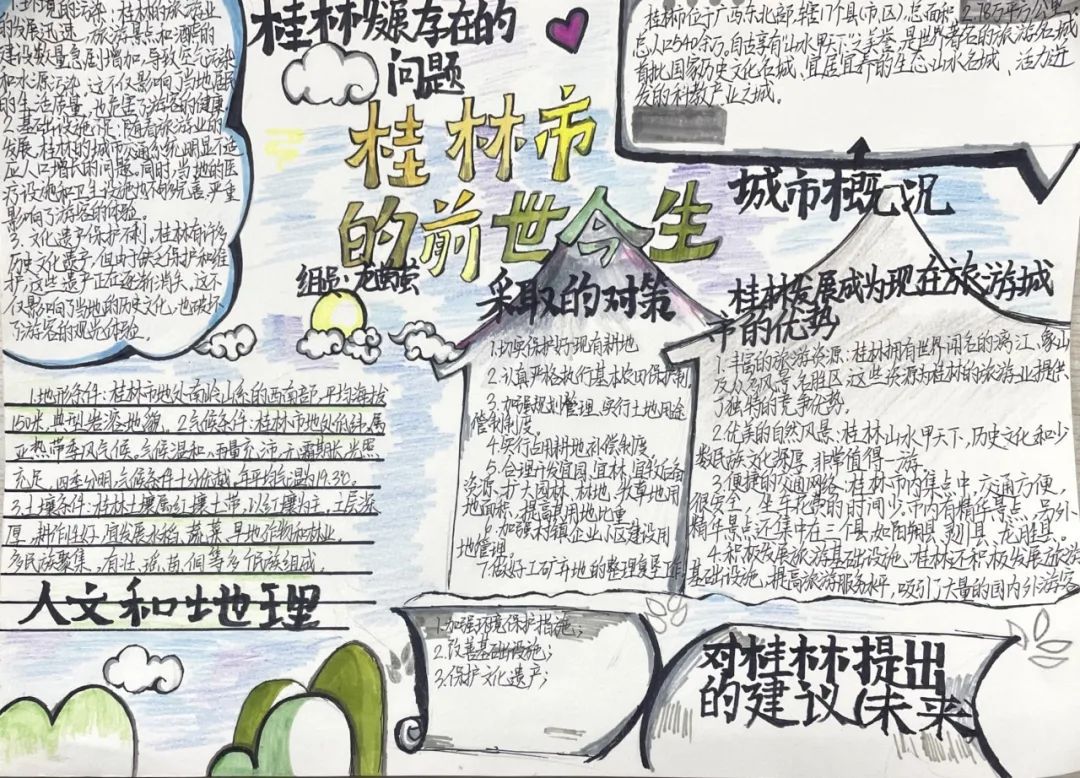 桂林发展存在的
问题
1.环境的污染：桂林的旅游业
的发展迅速，旅游景点和酒店的
建设数量急剧增加，导致空气污染
和水源污染，这不仅影响了当地居民
的生活质量，也危害了游客的健康。
2.基础设施不足，随着旅游业的
发展，桂林的城市交通系统明显不适
应人口增长的问题。同时，当地的医
疗设施和卫生设施均不够完善，严重
影响了游客的体验。
3.文化遗产保护不利，桂林有许多
历史文化遗产，但由于缺乏保护和维
护，这些遗产正在逐渐消失，这不
仅影响了当地的历史文化，也破坏
了游客的观光体验。
桂林市位于广西东北部，辖17个县(市、区)，总面积2.78万平方公里
总人口540余万，自古享有"山水甲天下"之美誉，是世界著名的旅游名城
首批国家历史文化名城、宜居宜养的生态山水名城、活力迸
发的科教产业之城。
城市概况
桂林市
的前世今生
组员：龙
采取的对策
1.切实保护好现有耕地
2.认真严格执行基本农田保护制
3.加强规划管理、实行土地用途
管制制度。
4.实行占用耕地补偿制度。
5.合理开发宜园、宜林、宜牧后备
资源，扩大园林、林地、牧草地用
地面积，提高其用地比重
6.加强村镇企业小区建设用
地管理。
7.做好工矿弃地的整理复垦工作
桂林发展成为现在旅游城
市的优势
1.丰富的旅游资源：桂林拥有世界闻名的漓江、象山
及众多风景名胜区，这些资源为桂林的旅游业提供
了独特的竞争优势。
2.优美的自然风景：桂林山水甲天下，历史文化和少
数民族文化深厚，非常值得一游。
3.便捷的交通网络：桂林市内集点中，交通方便，
很安全，坐车花费的时间少，市内有精华景点，另外
精华景点还集中在三个县，如阳朔县、兴县、龙胜县。
4.积极发展旅游基础设施：桂林还积极发展旅游
基础设施，提高旅游服务水平，吸引了大量的国内外游客
1.地形条件：桂林市地处南岭山系的西南部，平均海拔
150米，典型岩溶地貌。2.气候条件：桂林市地处低纬，属
亚热带季风气候。气候温和，雨量充沛，无霜期长，光照
充足，四季分明，气候条件十分优越，年平均气温约19.3℃。
3.土壤条件：桂林土壤属红壤土带，以红壤为主，土层深
厚，耕作性好，宜发展水稻、蔬菜、旱地作物和林业。
多民族聚集，有壮、瑶、苗、侗等多个民族组成。
人文和地理
1.加强环境保护措施；
2.改善基础设施；
3.保护文化遗产；
对桂林提出
的建议(未来